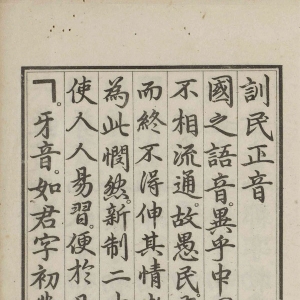 訓民正音
國之語音。異乎中
不相流通。故愚民
而終不得伸其情
為此憫然。新制二十
使人人易習。便於
ㄱ。牙音。如君字初